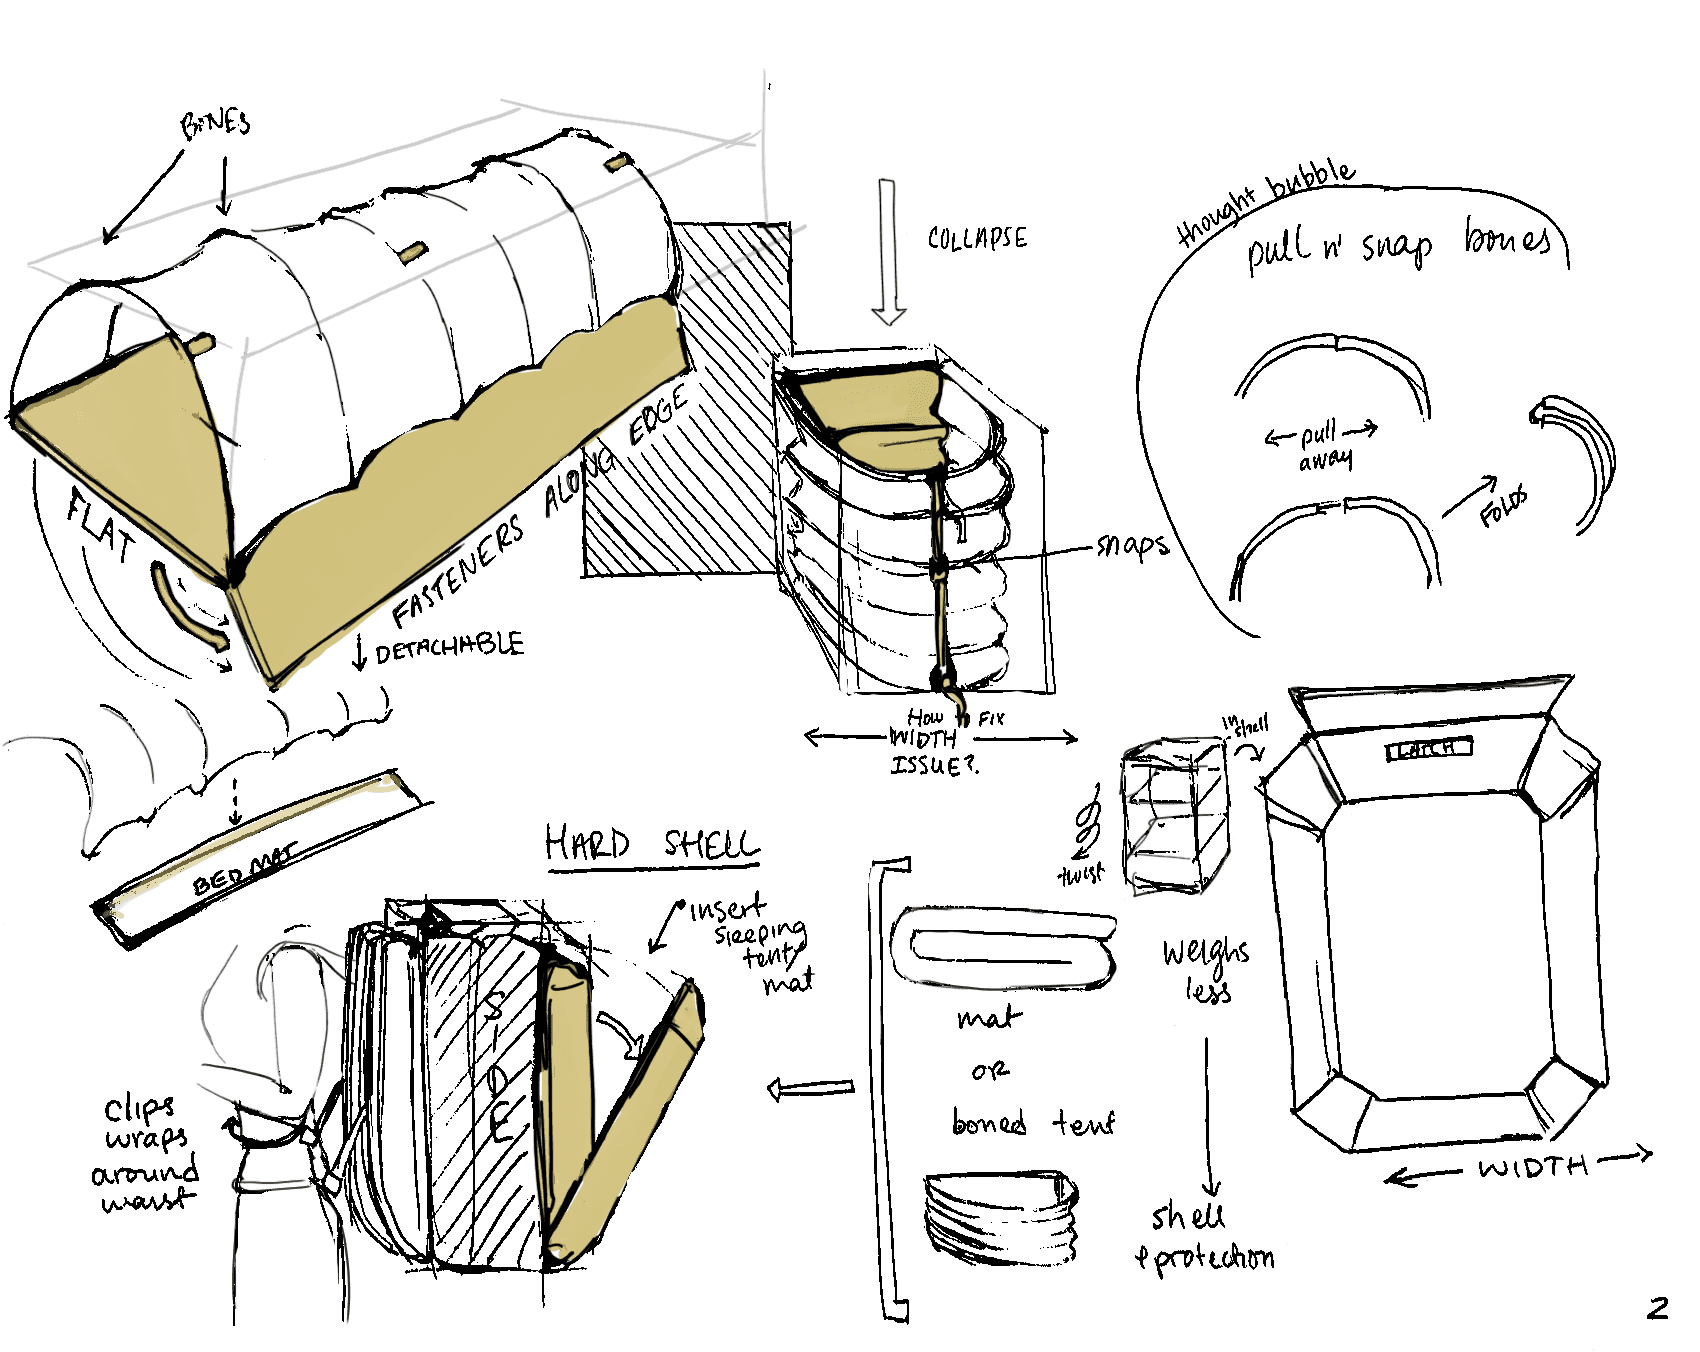 BONES
COLLAPSE
thought bubble
pull n' snap bones
pull
away
FOLDS
FLAT
FASTENERS ALONG EDGE
DETACHABLE
snaps
HOW to FIX
WIDTH
ISSUE?
BED MAT
in
shell
LATCH
twist
HARD SHELL
insert
sleeping
tent/
mat
SIDE
weighs
less
mat
or
boned tent
clips
wraps
around
waist
shell
+ protection
WIDTH
2